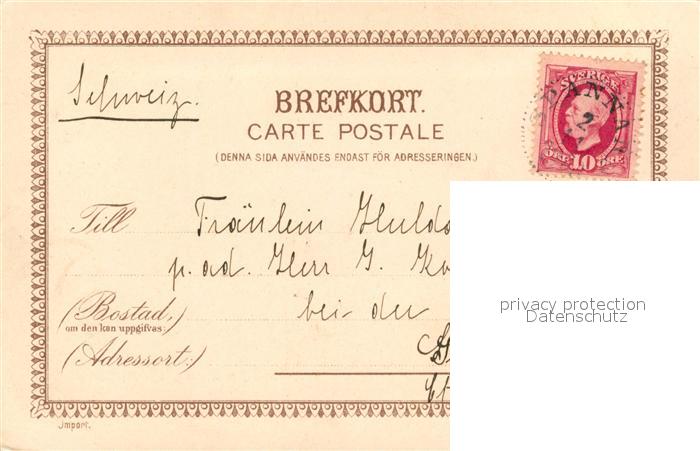 Schweiz.
BREFKORT.
CARTE POSTALE
(DENNA SIDA ANVÄNDES ENDAST FÖR ADRESSERINGEN.)
SVERIGE
2
ÖRE 10 ÖRE
Till Fräulein Huld
p. ad. Herr J.
(Bostad,) bei der
om den kan uppgifvas:
(Adressort:)
Import.
privacy protection
Datenschutz